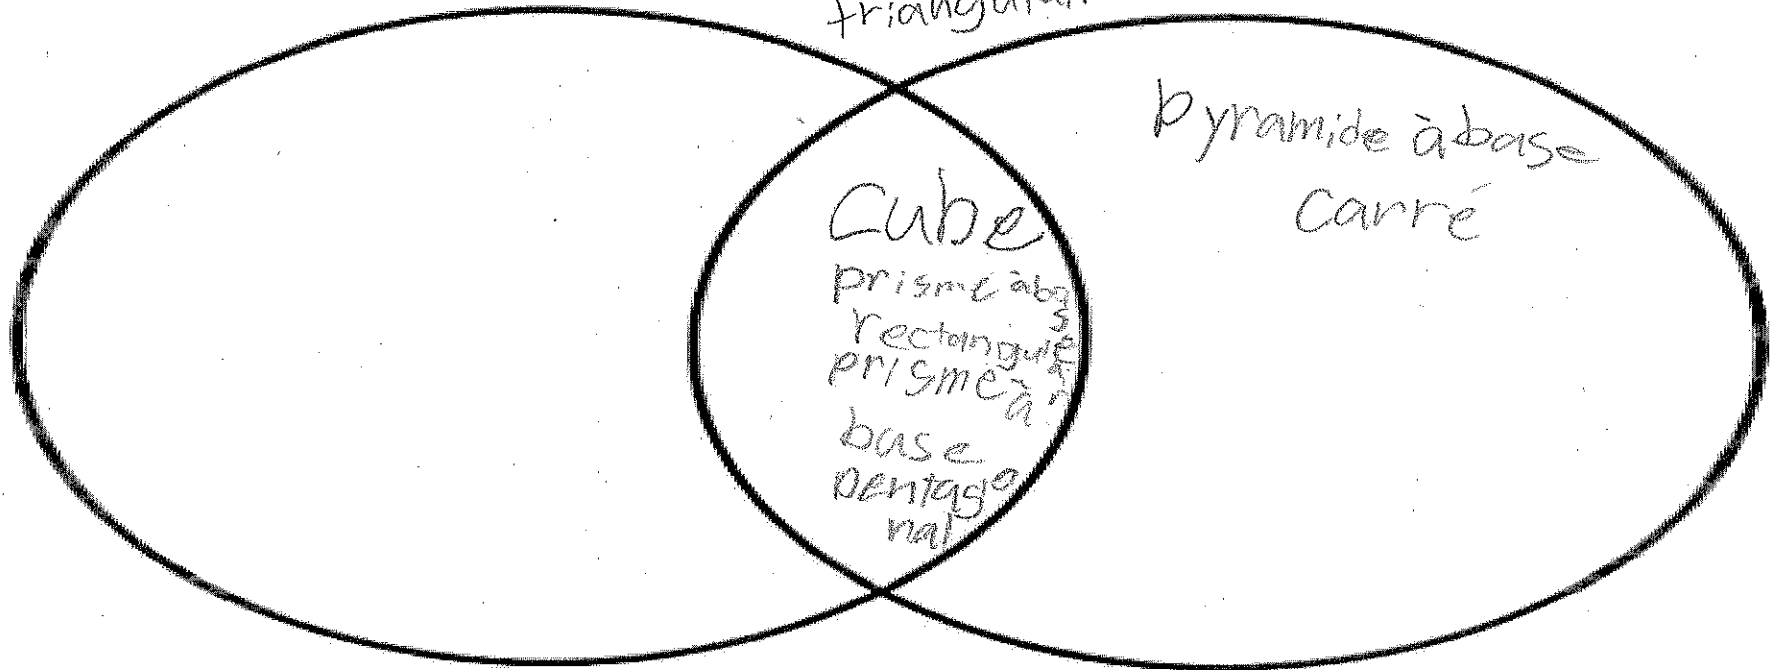 triangulai
pyramide à base
carré
Cube
prisme à base
rectangulair
prisme à
base
pentago
nal